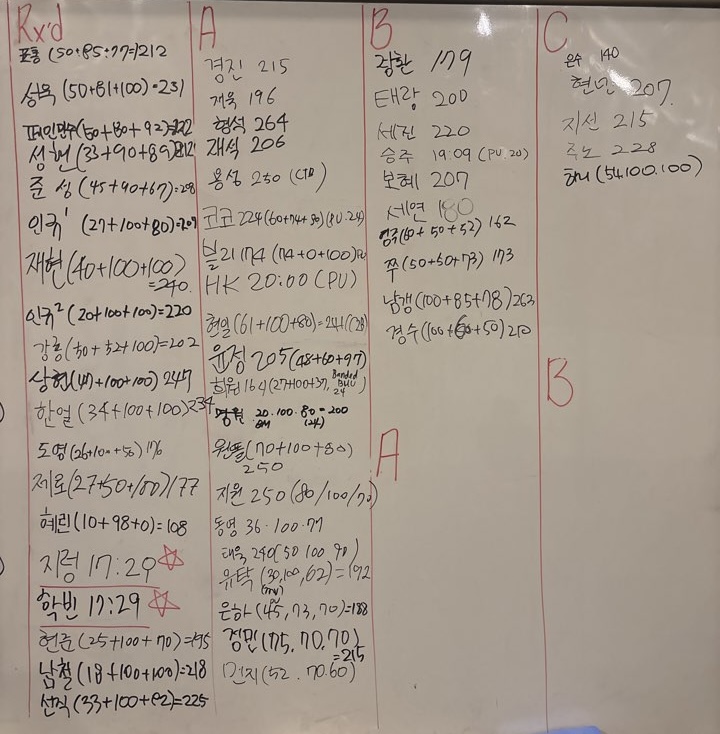 Rx'd
표통 (50+85+77=)212
성욱 (50+81+100)=231
(50+80+92)=222
성헌 (33+90+89)
준성 (45+90+67)=
인규¹ (27+100+80)=207
재현 (40+100+100)
=240
인규² (20+100+100)=220
강흥 (50+52+100)=202
상현 (47+100+100) 247
한얼 (34+100+100) 234
도영 (26+100+50) 176
제로 (27+50+100) 177
혜린 (10+98+0)=108
지령 17:29
학빈 17:29
현준 (25+100+70)=195
남철 (18+100+100)=218
선직 (33+100+92)=225
A
경진 215
재욱 196
형석 264
재석 206
용성 250
코코 224 (60+74+90) (PU.24)
블리 174 (74+0+100)
HK 20:00 (PU)
현일 (61+100+80)=241 (28)
윤정 205 (48+60+97)
희원 164 (27+100+37, Banded
24
명원 20.100.80=200
(24)
원뜰 (70+100+80)
250
지원 250 (80/100/70)
동영 36.100.77
태욱 240 (50 100 90)
유탁 (30,100,62)=192
은하 (45,73,70)=188
정민 (75,70,70)
=215
민지 (52.70.60)
B
광환 179
태랑 200
세진 220
승주 19:09 (PU.20)
보혜 207
세연 180
(60+50+52) 162
쭈 (50+50+73) 173
남갱 (100+85+78) 263
경수 (100+60+50) 210
A
C
은수 140
현민 207.
지선 215
주노 228
하니 (54.100.100)
B